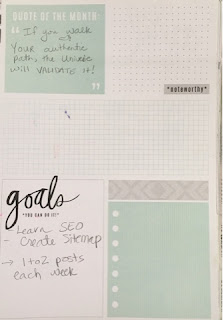 QUOTE OF THE MONTH:
“ If you walk
Your authentic
path, the Universe
will VALIDATE it!
”
*noteworthy*
goals
*YOU CAN DO IT!*
- Learn SEO
- Create Sitemap
→ 1 to 2 posts
each week